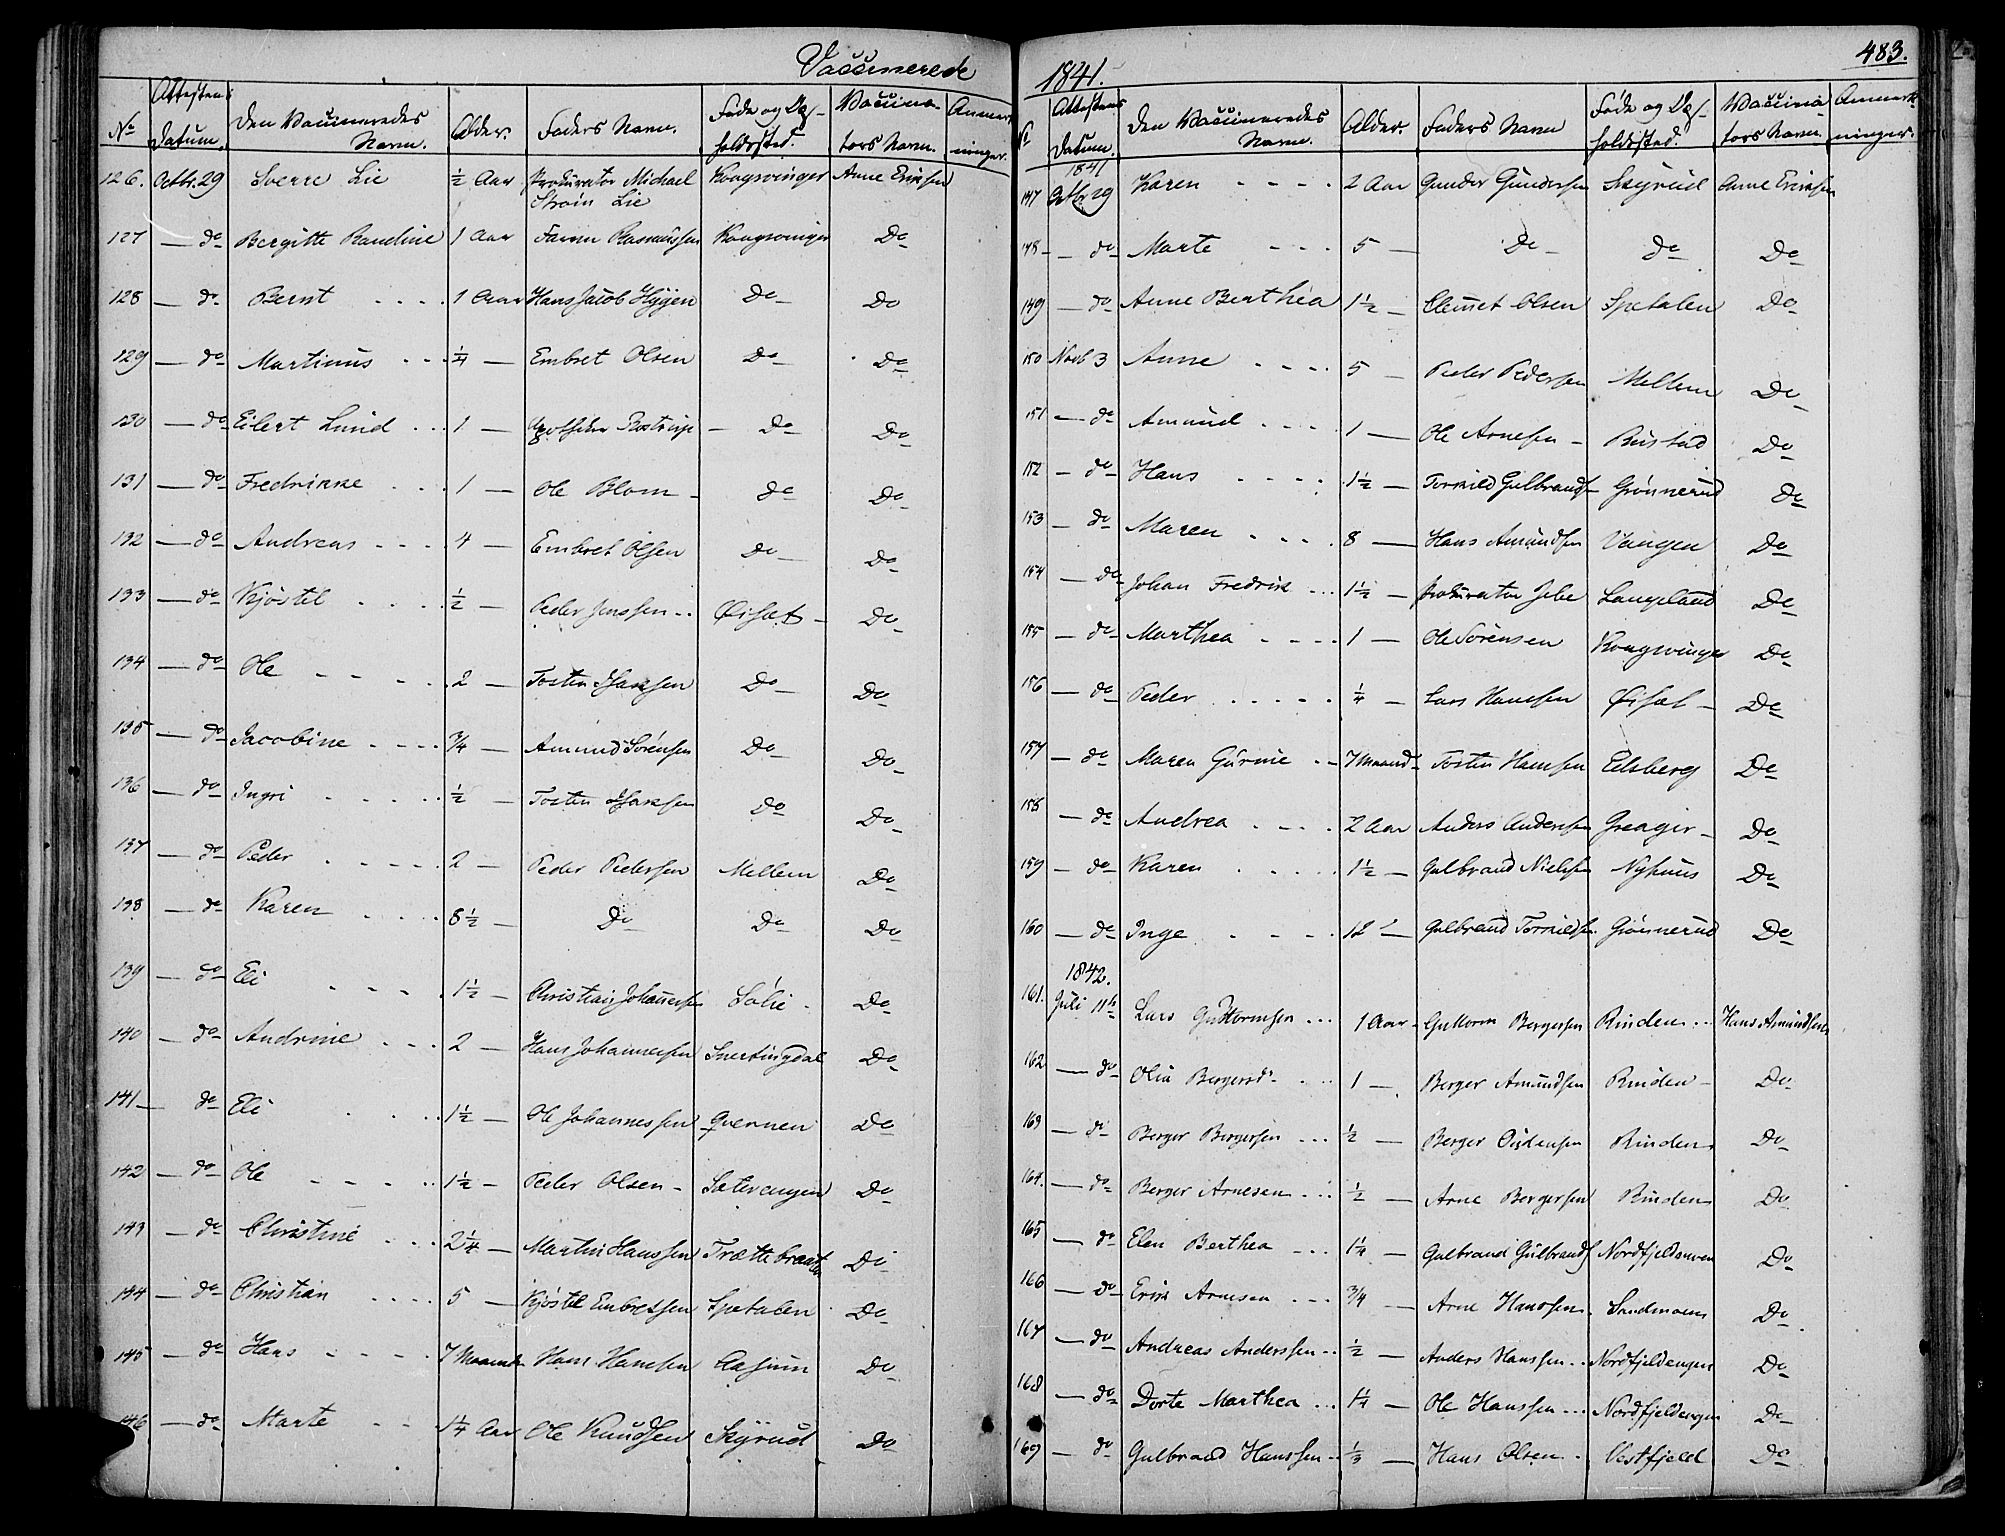 Vaccinerede
No Attestens Datum. Den Vaccineredes Navn. Alder. Faders Navn. Føde og Op-holdssted. Vaccina-tors Navn. Anmærk-ninger.
126. Octbr. 29 Sverre Lie ½ Aar Prokurator Michael Kongsvinger Anne Eriksen
Strøm Lie
127 — do Bergitte Randine 1 Aar Rasmussen Kongsvinger Do
128 — do Bernt 1 Aar Hans Jacob Hygen Do Do
129 — do Martinus ¼ — Embret Olsen Do Do
130 — do Eilert Lund 1 — Apotheker Rostrup — Do Do
131 — do Fredrikke 1 — Ole Blom do Do
132 — do Andreas 4 — Embret Olsen Do Do
133 — do Kjøstel ½ — Peder Jenssen Øiset Do
134 — do Ole 2 — Tosten Hanssen Do Do
135 — do Jacobine ¾ — Amund Sørensen Do Do
136 — do Ingri ½ — Tosten Hanssen Do Do
137 — do Peder 2 — Peder Pedersen Mellem Do
138 — do Karen 8½ — Do Do Do
139 — do Eli 1½ — Christian Johannessen Solie Do
140 — do Andrine 2 — Hans Johannessen Snertingdal Do
141 — do Eli 1½ — Ole Johannessen Qvernen Do
142 — do Ole 1½ — Peder Olsen Sæterengen Do
143 — do Christine 2¼ — Martin Hanssen Trættebraaten Do
144 — do Christian 5 — Kjøstel Embretsen Spetalen Do
145 — do Hans 7 Maaneder Hans Hansen Aasum Do
146 — do Marte 1¼ Aar Ole Knudsen Skyrud Do
1841. 483.
No Attestens Datum. Den Vaccineredes Navn. Alder. Faders Navn Føde og Op-holdssted. Vaccina-tors Navn. Anmærk-ninger.
1841
147 Octbr 29 Karen 2 Aar Gunder Gundersen Skyrud Anne Eriksen
148 — do Marte 5 — Do do Do
149 — do Anne Berthea 1½ — Clemet Olsen Spetalen Do
150 Novb 3 Anne 5 — Peder Pedersen Mellem Do
151 — do Amund 1 — Ole Arnesen Rustad Do
152 — do Hans 1½ — Torkild Gulbrands Grønnerud Do
153 — do Maren 8 — Hans Amundsen Vangen Do
154 — do Johan Fredrik 1½ — Prokurator Langeland Do
155 — do Marthea 1 — Ole Sørensen Kongsvinger Do
156 — do Peder ¼ — Lars Hansen Øiset Do
157 — do Maren Gurine 7 Maand Tosten Hansen Elsberg Do
158 — do Andrea 2 Aar Anders Andersen Greager Do
159 — do Karen 1½ — Gulbrand Nielsen Nyhuus Do
160 — do Inge 12 — Gulbrand Torkildsen Grønnerud Do
1842.
161. Juli 11te Lars Guttormsen 1 Aar Guttorm Bergersen Rinden Hans Amundsen
162 — do Olia Bergersd. 1 — Berger Amundsen Rinden Do
163 — do Berger Bergersen ½ — Berger Rinden Do
164. — do Berger Arnesen ½ — Arne Bergersen Rinden Do
165 — do Elen Berthea 1¼ — Gulbrand Gulbrands Nordfjeldenven Do
166 — do Erik Arnesen ¾ — Arne Hanssen Sandmoen Do
167 — do Andreas Anderssen ½ — Anders Hanssen Nordfjeldengen Do
168 — do Dorte Marthea 1¼ — Ole Hanssen Nordfjeldengen Do
169 — do Gulbrand Hanssen ⅓ — Hans Olsen Vestfjeld Do